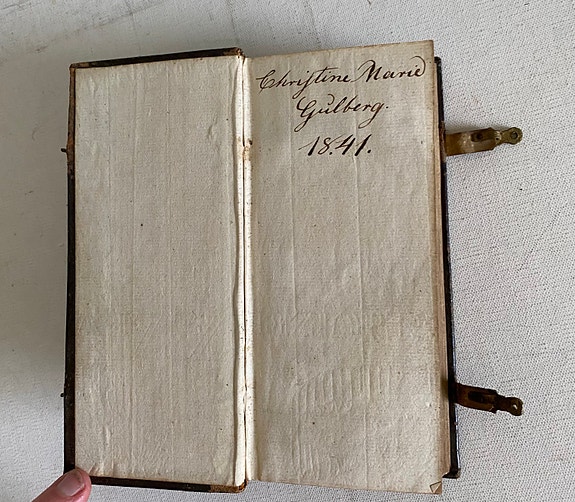 Christine Marie
Gulberg.
1841.